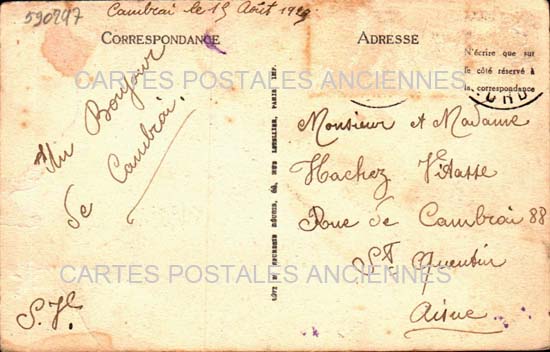 590297
Cambrai le 15 Août 1929
CORRESPONDANCE
ADRESSE
N'écrire que sur
le côté réservé à
la correspondance
CARTES POSTALES ANCIENNES
Un Bonjour
de Cambrai.
Monsieur et Madame
Hachez Vitasse
Rue de Cambrai 88
St Quentin
Aisne
CARTES POSTALES ANCIENNES
S. H.
RÉUNIS, RUE LETELLIER, PARIS